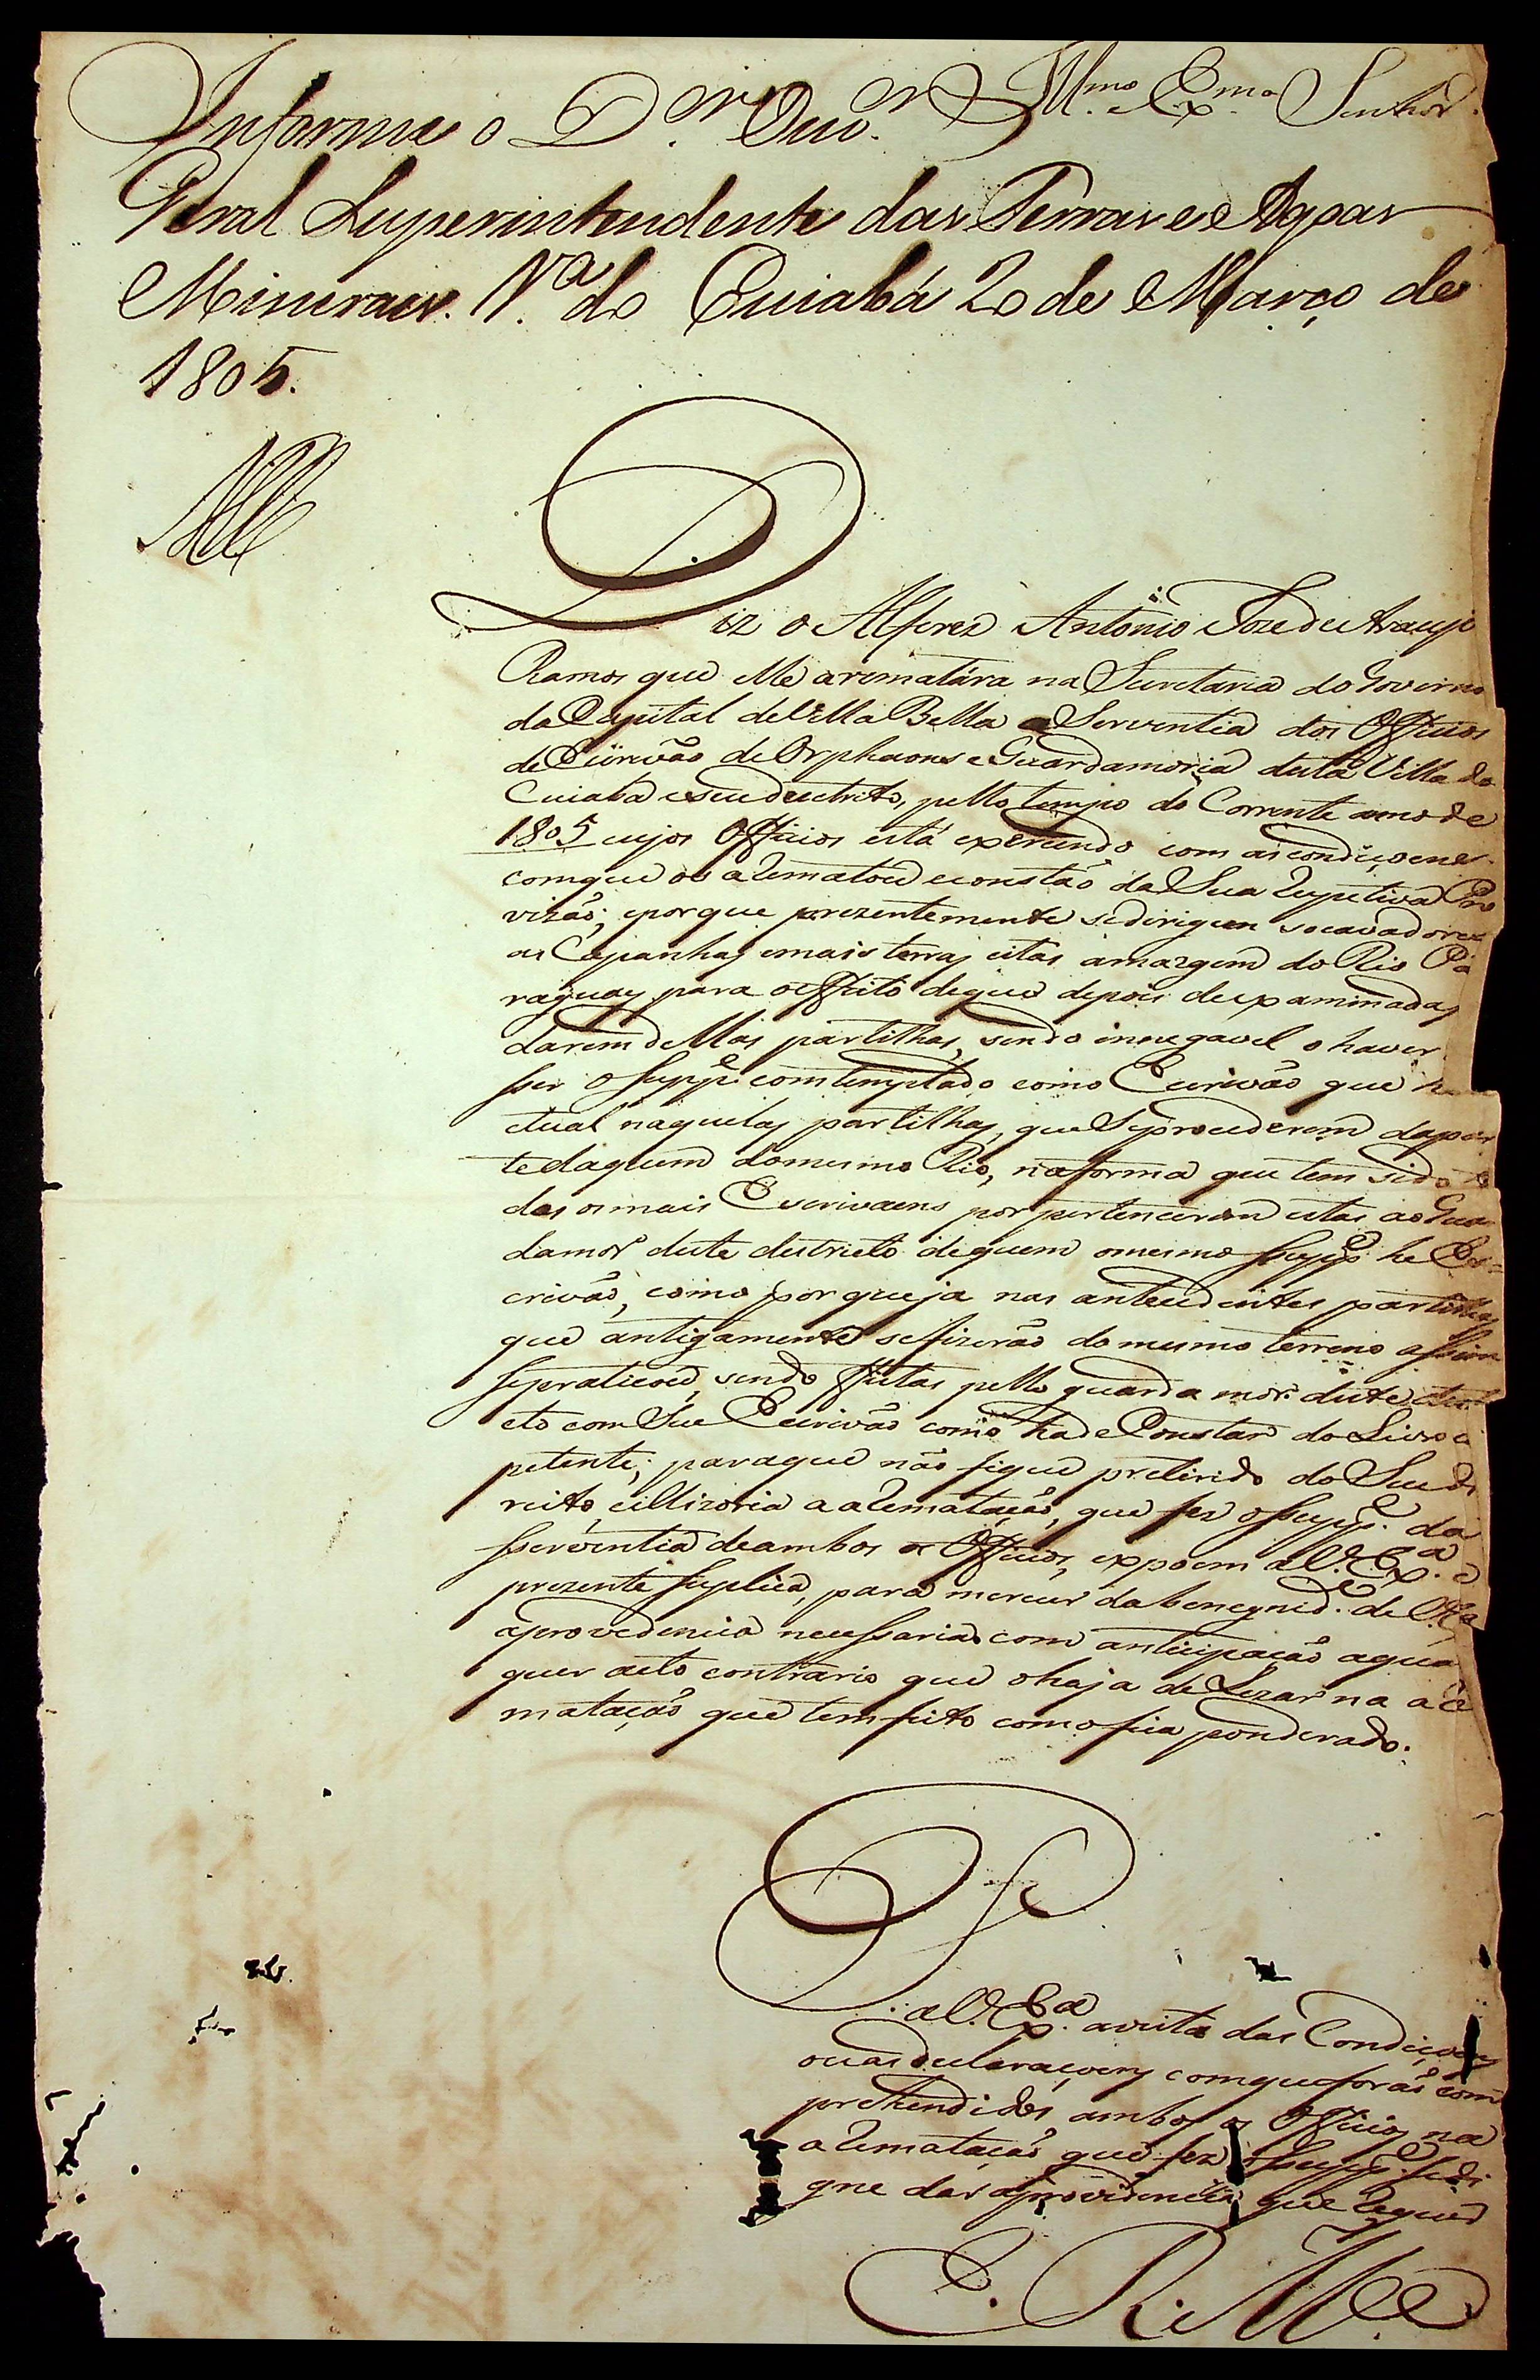 Informe o D.or Ouv.or Ill.mo e Ex.mo Senhor.
Geral Superintendente das Terras e Agoas
Mineraes. V.a do Cuiabá 20 de Março de
1805.
Diz o Alferez Antonio Joze de Araujo
Ramos que elle arematára na Secretaria do Governo
da Capital de Villa Bella a Serventia dos Officios
de Escrivão de Orphaons e Guardamoria desta Villa do
Cuiaba e seu destrito, pello tempo do Corrente anno de
1805 cujos Officios está exercendo com as condiçoens
com que os arematou e constão da Sua respetiva Pro
vizão; e porque prezentemente se dirigem socavadores
as Capanhas e mais terras citas a margem do Rio Pa
raguay para o effeito de que depois de examinadas
darem dellas partilhas, sendo innegavel o haver
ser o Supp.e comtemplado como Escrivão que he
ctual naquelas partilhas, que Se procederem da par
te daquem do mesmo Rio, na forma que tem sido to
dos os mais Escrivaens por pertencerem estas ao Guar
damor deste destricto de quem o mesmo Supp.e he Es=
crivão, como por que ja nas antecedentes partilhas
que antigamente se fizerão do mesmo terreno assim
se praticou, sendo feitas pello guarda mor deste
cto com Seu Escrivão como hade Constar do Livro
petente; para que não fique preterido do Seu di
reito, e illizoria a arematação, que fez o Supp.e da
Serventia de ambos os Officios, expoem a V. Ex.a a
prezente Suplica, para merecer da benegnid.e de V. Ex.a
a providencia necessaria com anticipação a qual
quer acto contrario que o haja de Lezar na are
matação que tem feito como fica ponderado.
P.
a V. Ex.a a vista das Condiçoens
ou as declaraçoens com que forão com
prehendidos ambos os Officios na
arematação que fez o Supp.e se di
gne dar a providencia que requer
E. R. M.ce